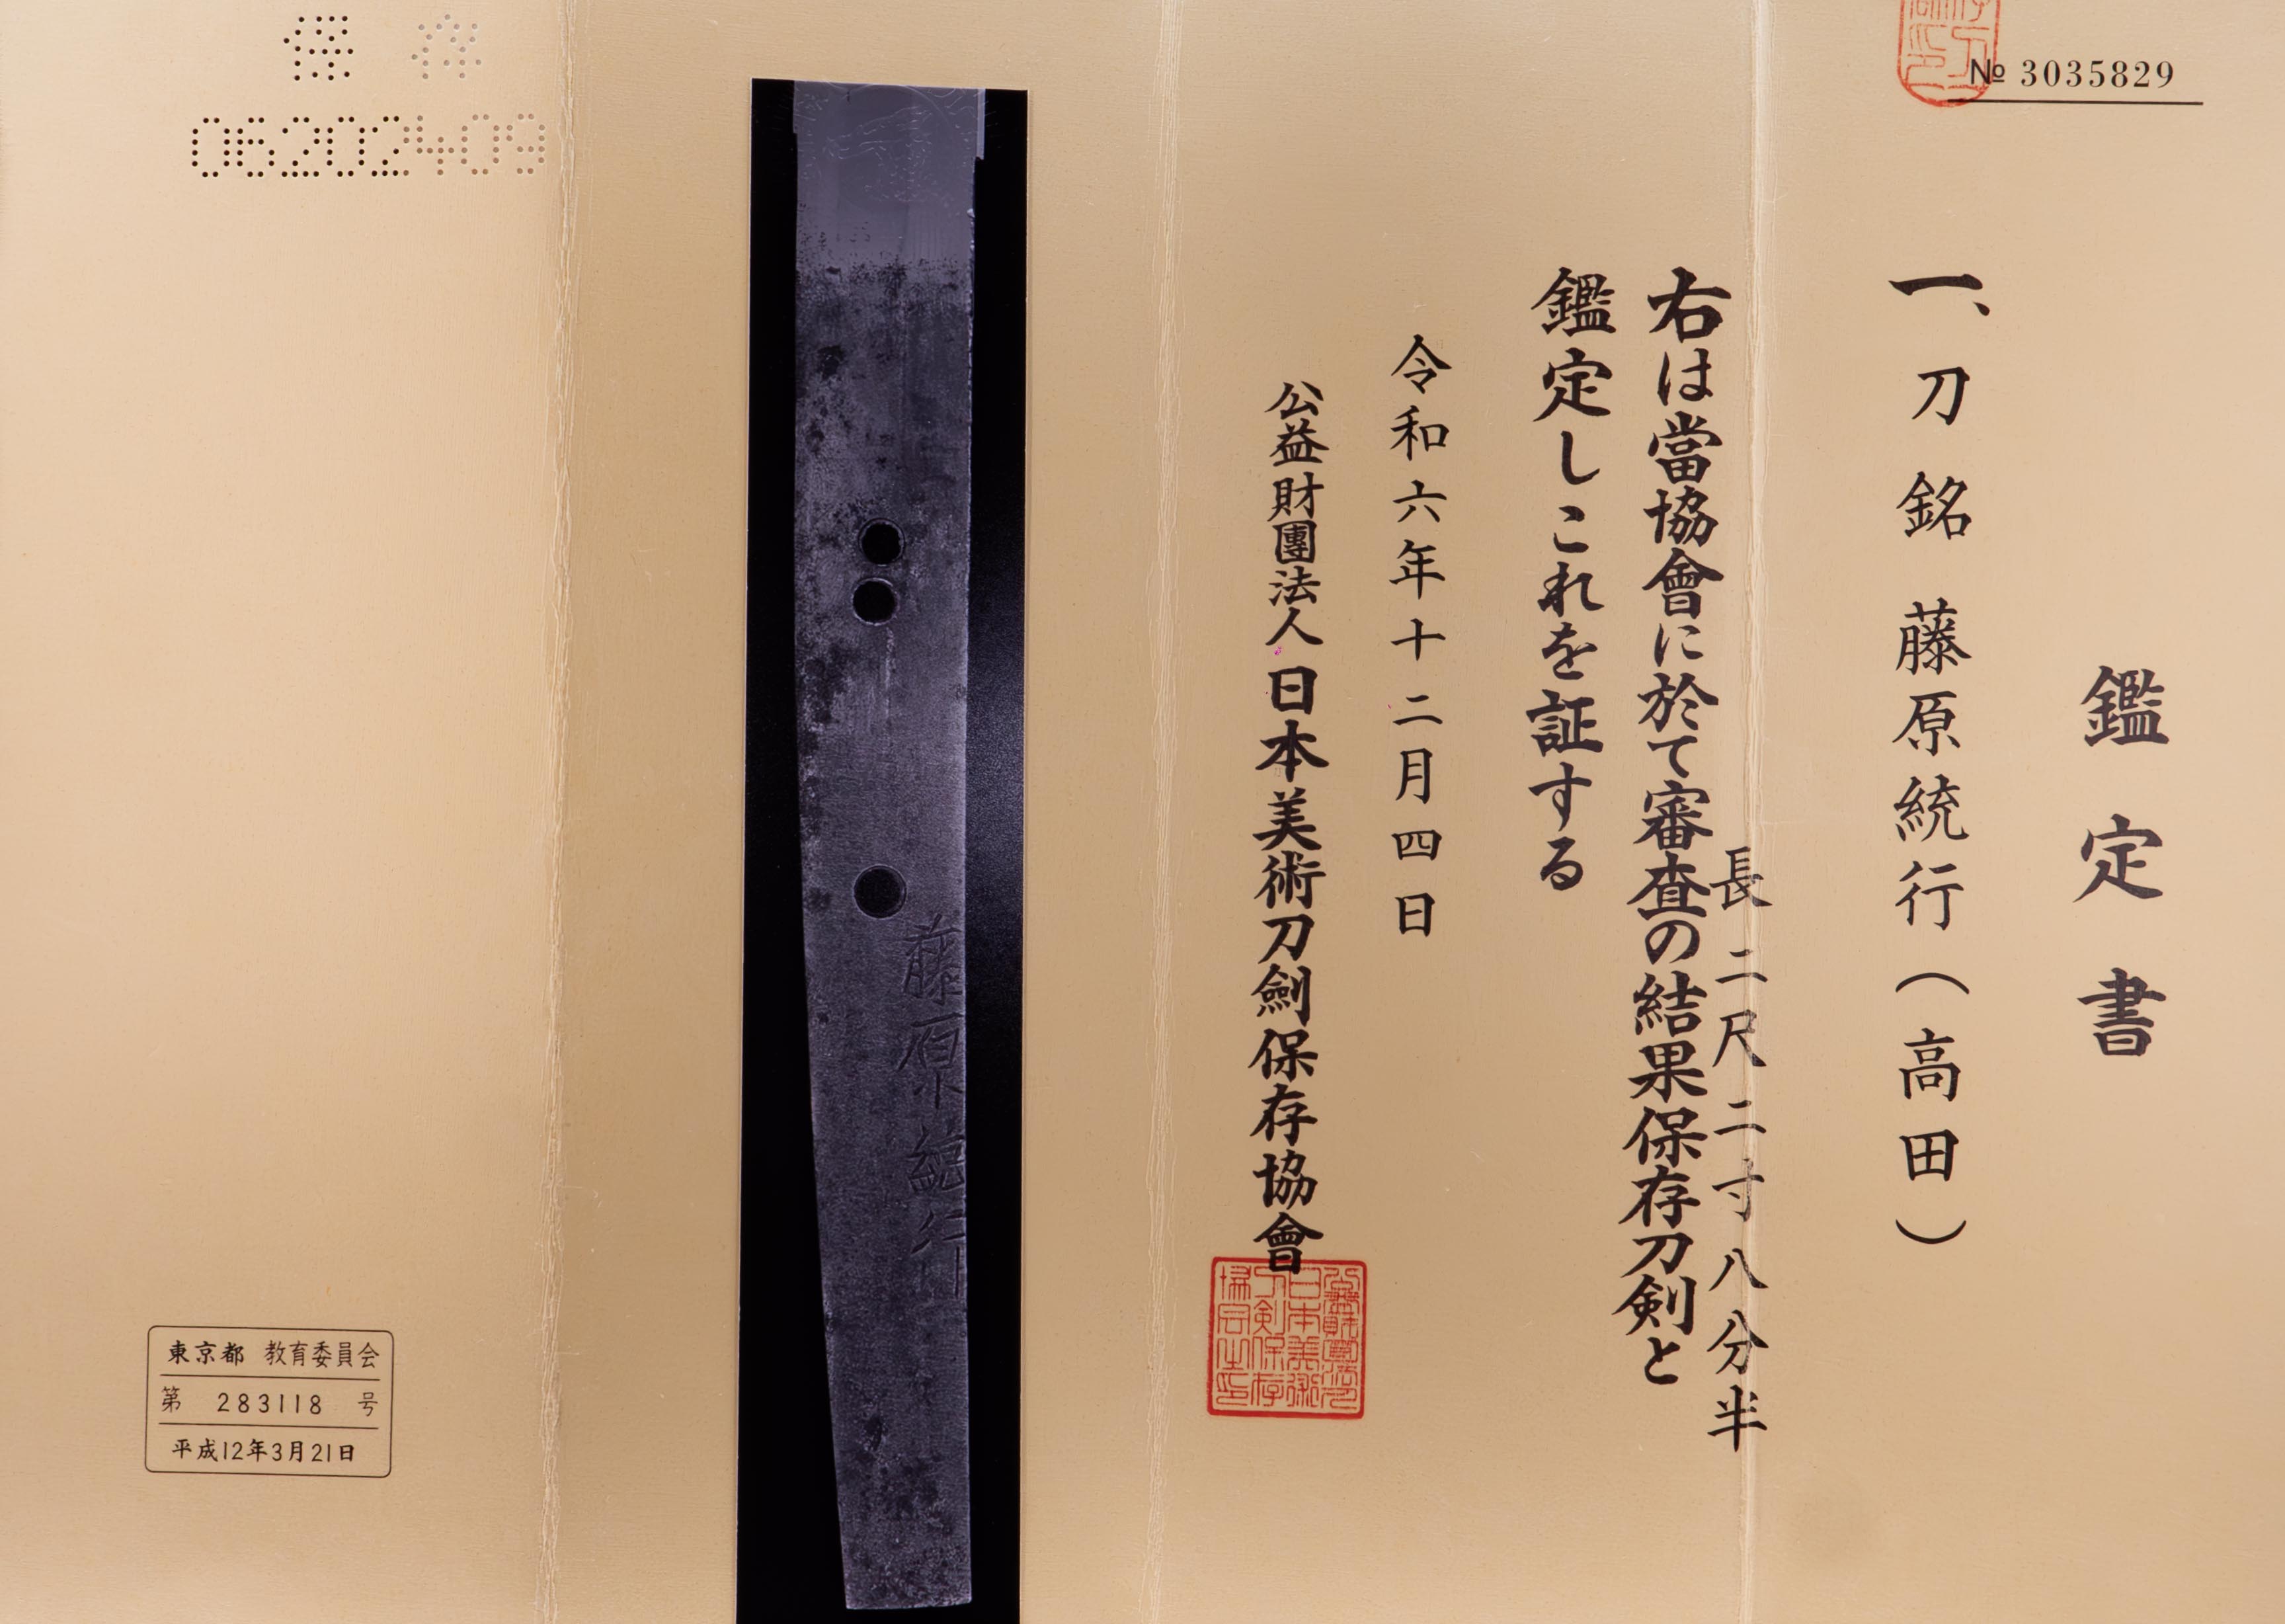 № 3035829
鑑定書
一、刀 銘 藤原統行(高田)
長 二尺二寸八分半
右は當協會に於て審査の結果保存刀剣と
鑑定しこれを証する
令和六年十二月四日
公益財團法人日本美術刀劍保存協會
藤原統行
06202409
東京都 教育委員会
第 283118 号
平成12年3月21日